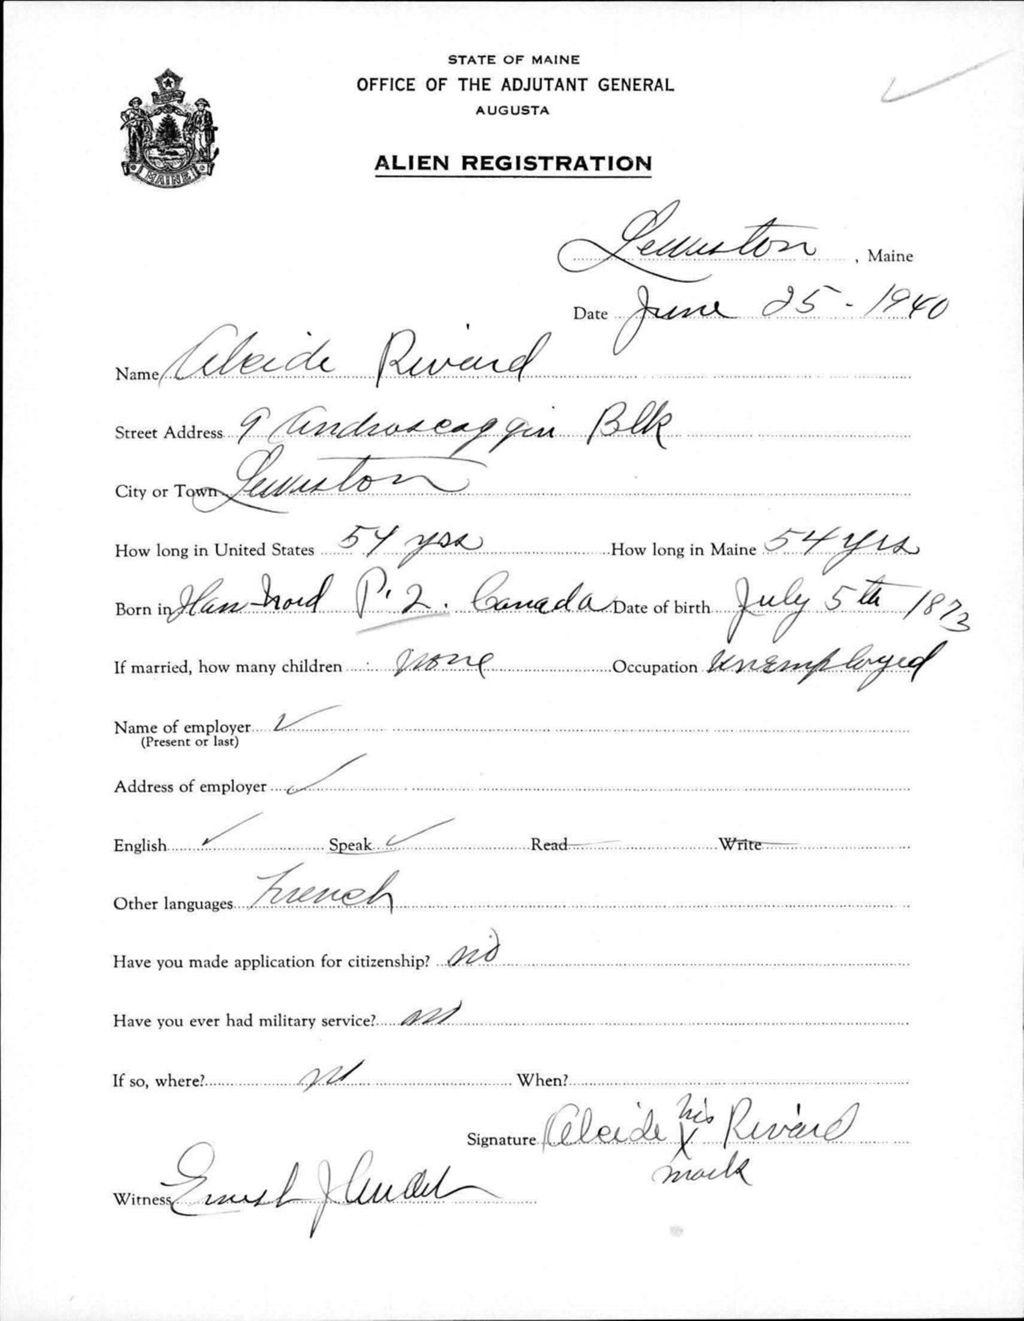 STATE OF MAINE
OFFICE OF THE ADJUTANT GENERAL
AUGUSTA
MAINE
ALIEN REGISTRATION
Lewiston, Maine
Date June 25 - 1940
Name Alcide Rivard
Street Address 9 Androscoggin Blk
City or Town Lewiston
How long in United States 54 yrs How long in Maine 54 yrs
Born in Ham-Nord P.Q. Canada Date of birth July 5th 1873
If married, how many children none Occupation Unemployed
Name of employer ✓
(Present or last)
Address of employer ✓
English ✓ Speak ✓ Read Write
Other languages French
Have you made application for citizenship? no
Have you ever had military service? no
If so, where? no When?
Signature Alcide his X mark Rivard
Witness Ernest J